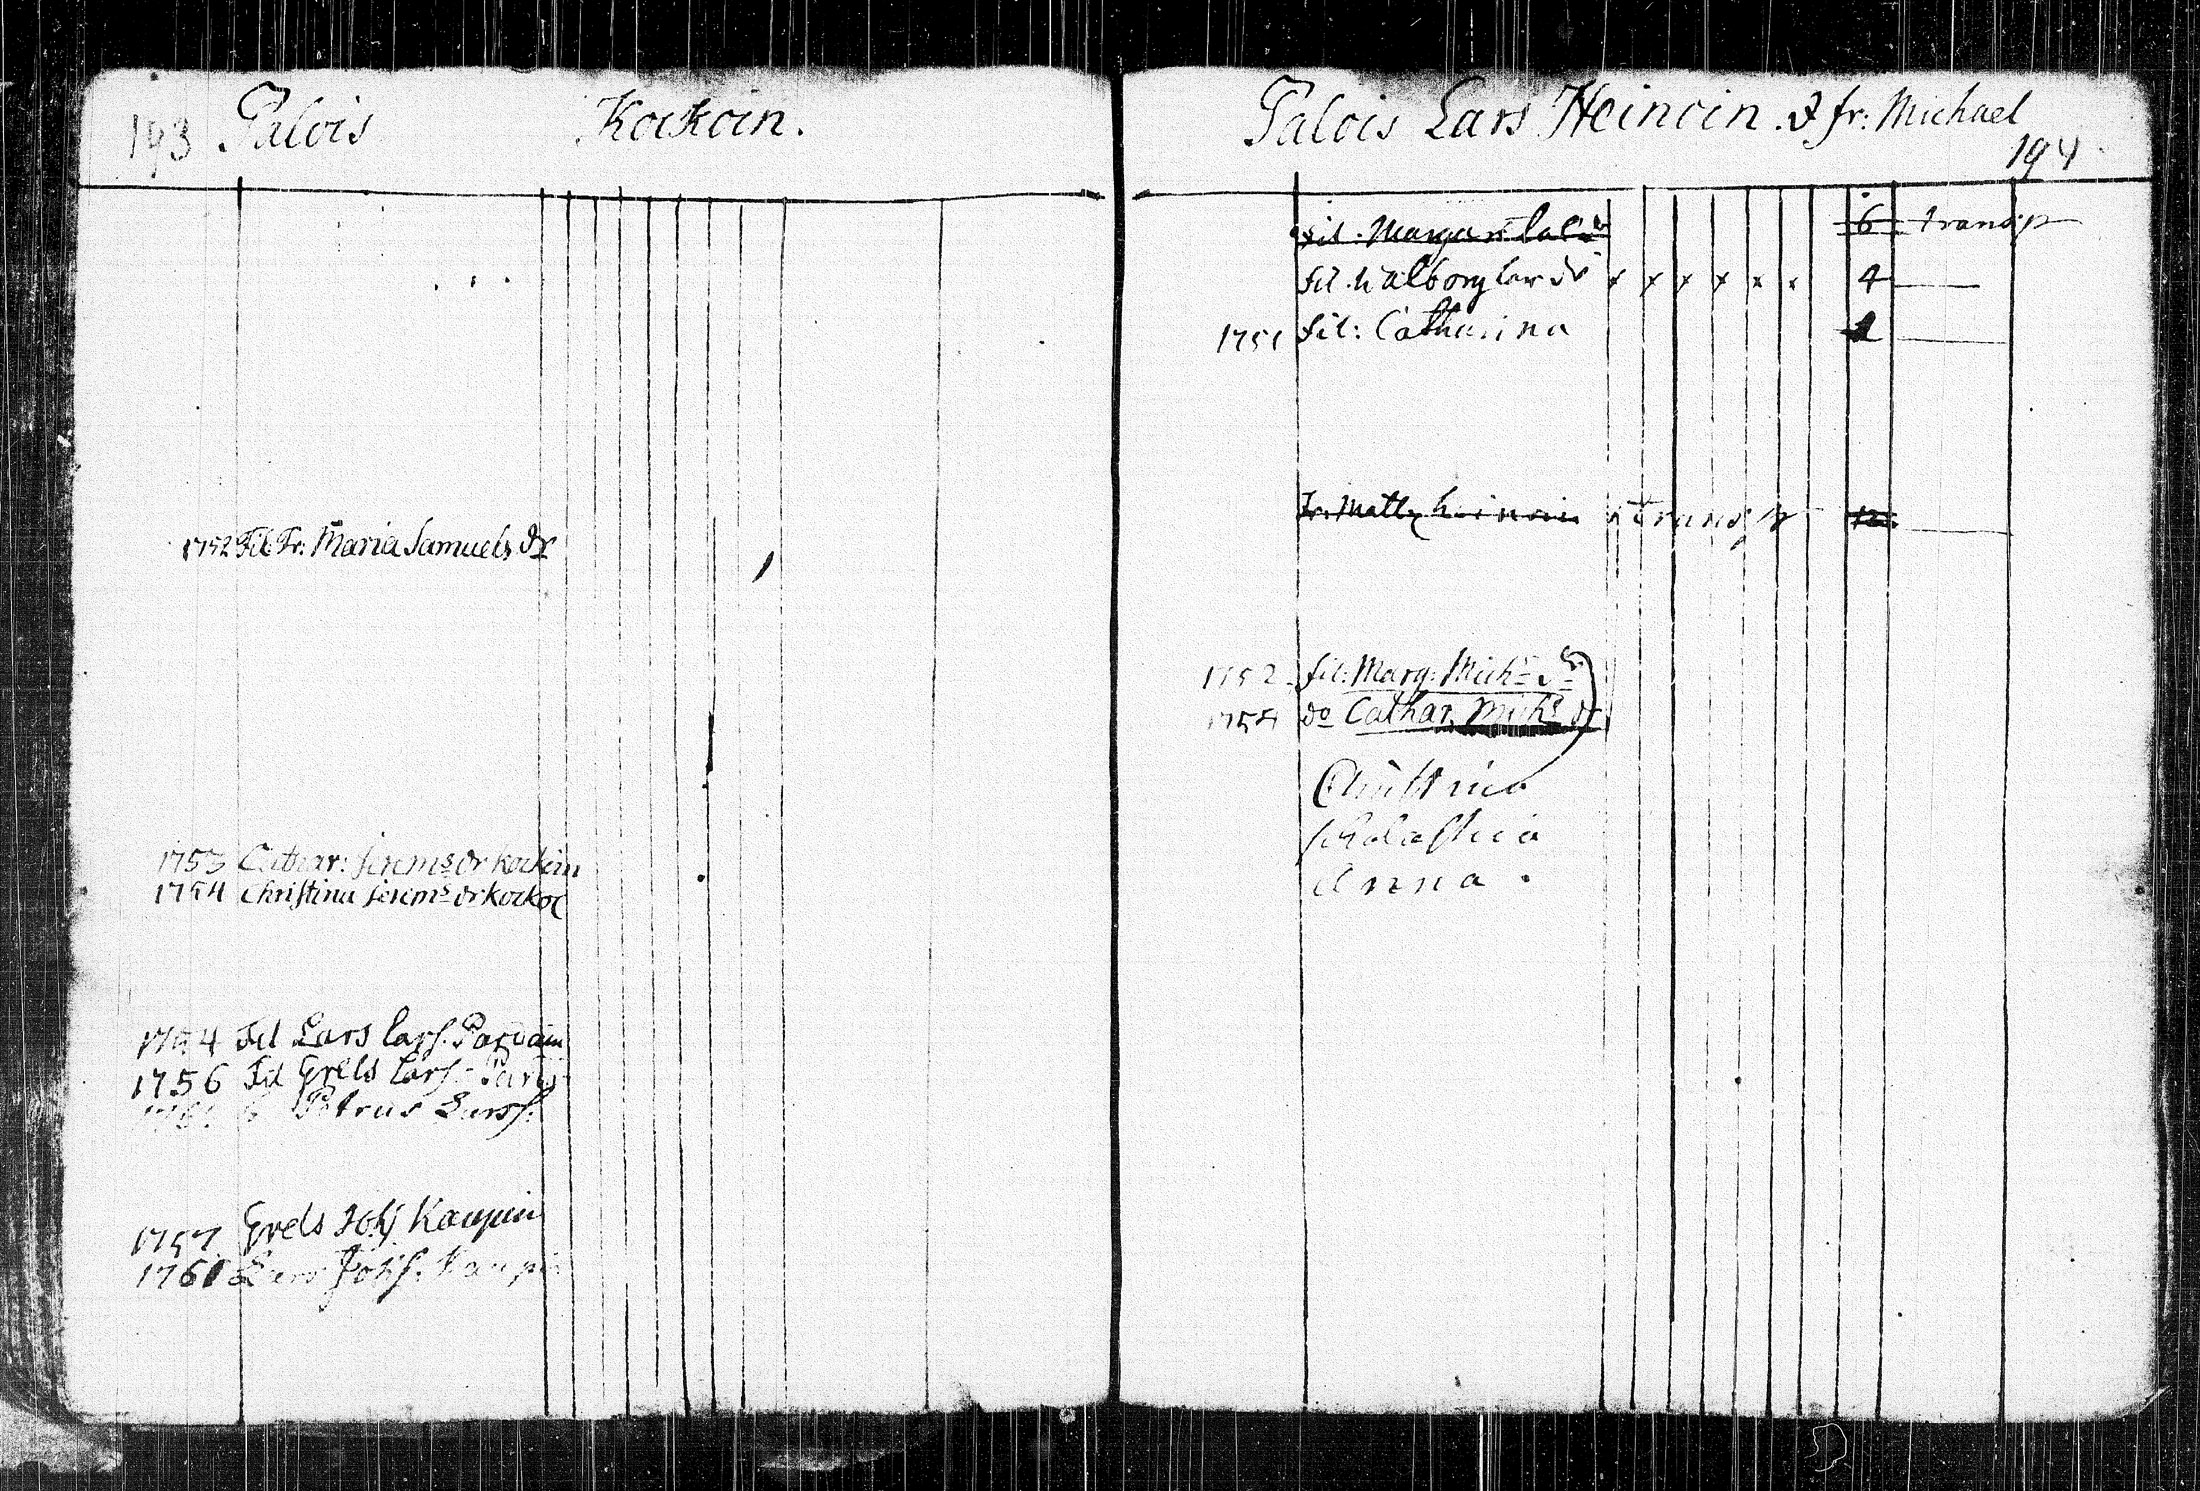 193 Palois Kockoin.
1752 Fil. Fr: Maria Samuels dr
1753 Cathar: Jerems dr Kockoin
1754 Christina Jerems dr Kockoi
1754 Fil Lars Lars. Parvain
1756 Fil Grels Lars.
Petrus Larss.
1757 Grels Joh Kaupin
1761 Lars Johs. Kaupi
Palois Lars Heinoin. & fr: Michael
194
Fil. Margar 6 transp
Fil. Walborg Lars dr x x x x x x 4
1751 Fil: Catharina
Fr. Matts Heinoin transp 12
1752 Fil: Marg: Michs dr
1754 do Cathar. Michs dr
Christina
Scholastica
Anna.